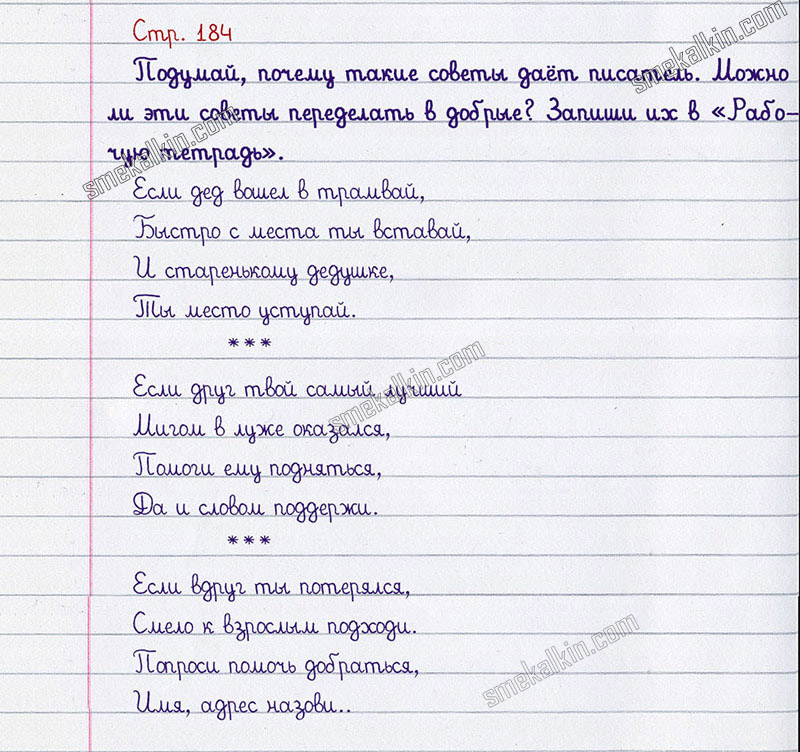 Стр. 184
Подумай, почему такие советы даёт писатель. Можно
ли эти советы переделать в добрые? Запиши их в «Рабо-
чую тетрадь».
Если дед вошел в трамвай,
Быстро с места ты вставай,
И старенькому дедушке,
Ты место уступай.
***
Если друг твой самый лучший
Мигом в луже оказался,
Помоги ему подняться,
Да и словом поддержи.
***
Если вдруг ты потерялся,
Смело к взрослым подходи.
Попроси помочь добраться,
Имя, адрес назови..
smekalkin.com
smekalkin.com
smekalkin.com
smekalkin.com